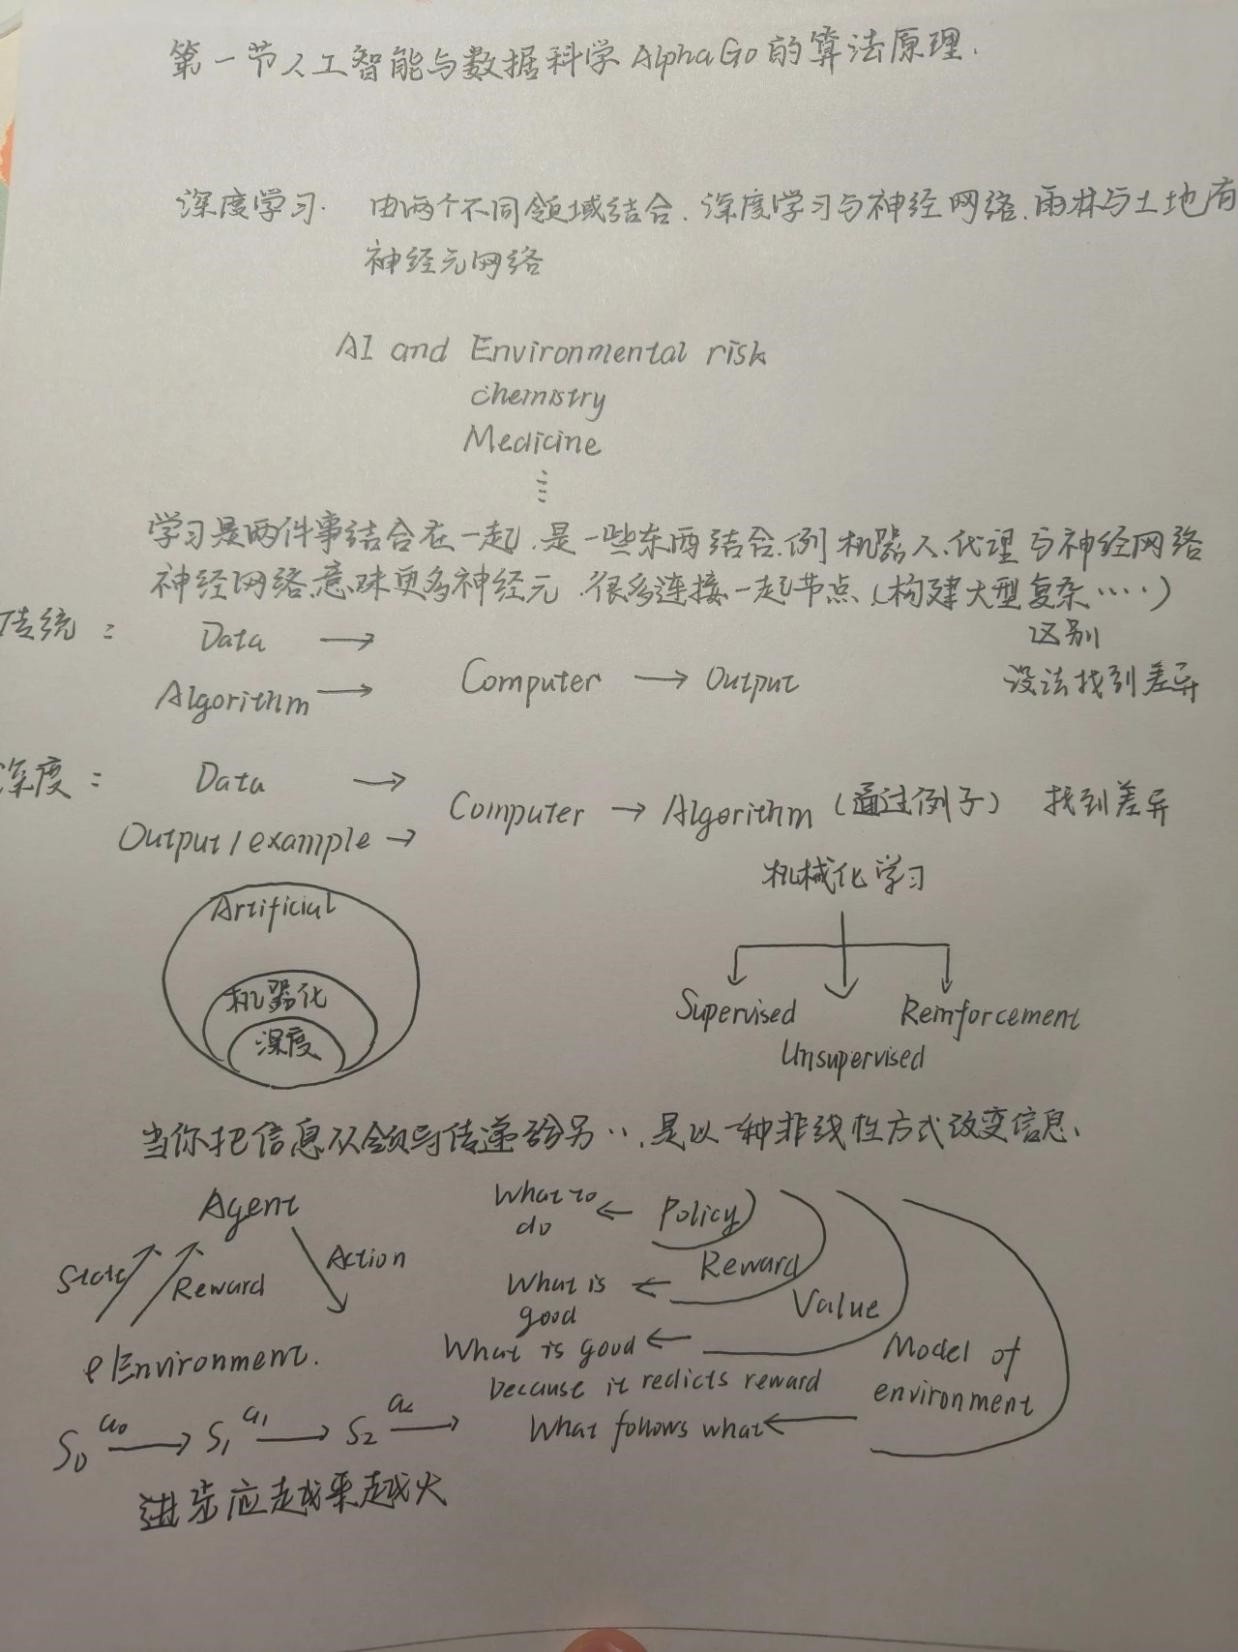 第一节人工智能与数据科学AlphaGo的算法原理.
深度学习. 由两个不同领域结合.深度学习与神经网络.雨林与土地有
神经元网络
AI and Environmental risk
chemistry
Medicine
⋮
学习是两件事结合在一起.是一些东西结合.例机器人.代理与神经网络
神经网络意味更多神经元.很多连接一起节点(构建大型复杂·····)
传统: Data → 区别
Algorithm → Computer → Output 没法找到差异
深度: Data →
Output/example → Computer → Algorithm (通过例子) 找到差异
机械化学习
Artificial
机器化
深度
Supervised Reinforcement
Unsupervised
当你把信息从领导传递给另··.是以一种非线性方式改变信息.
Agent
State Reward Action
Environment.
What to do ← Policy
Reward
What is good ←
Value
What is good ←
because it redicts reward
Model of environment
What follows what ←
S0 a0 → S1 a1 → S2 →
进步应越来越